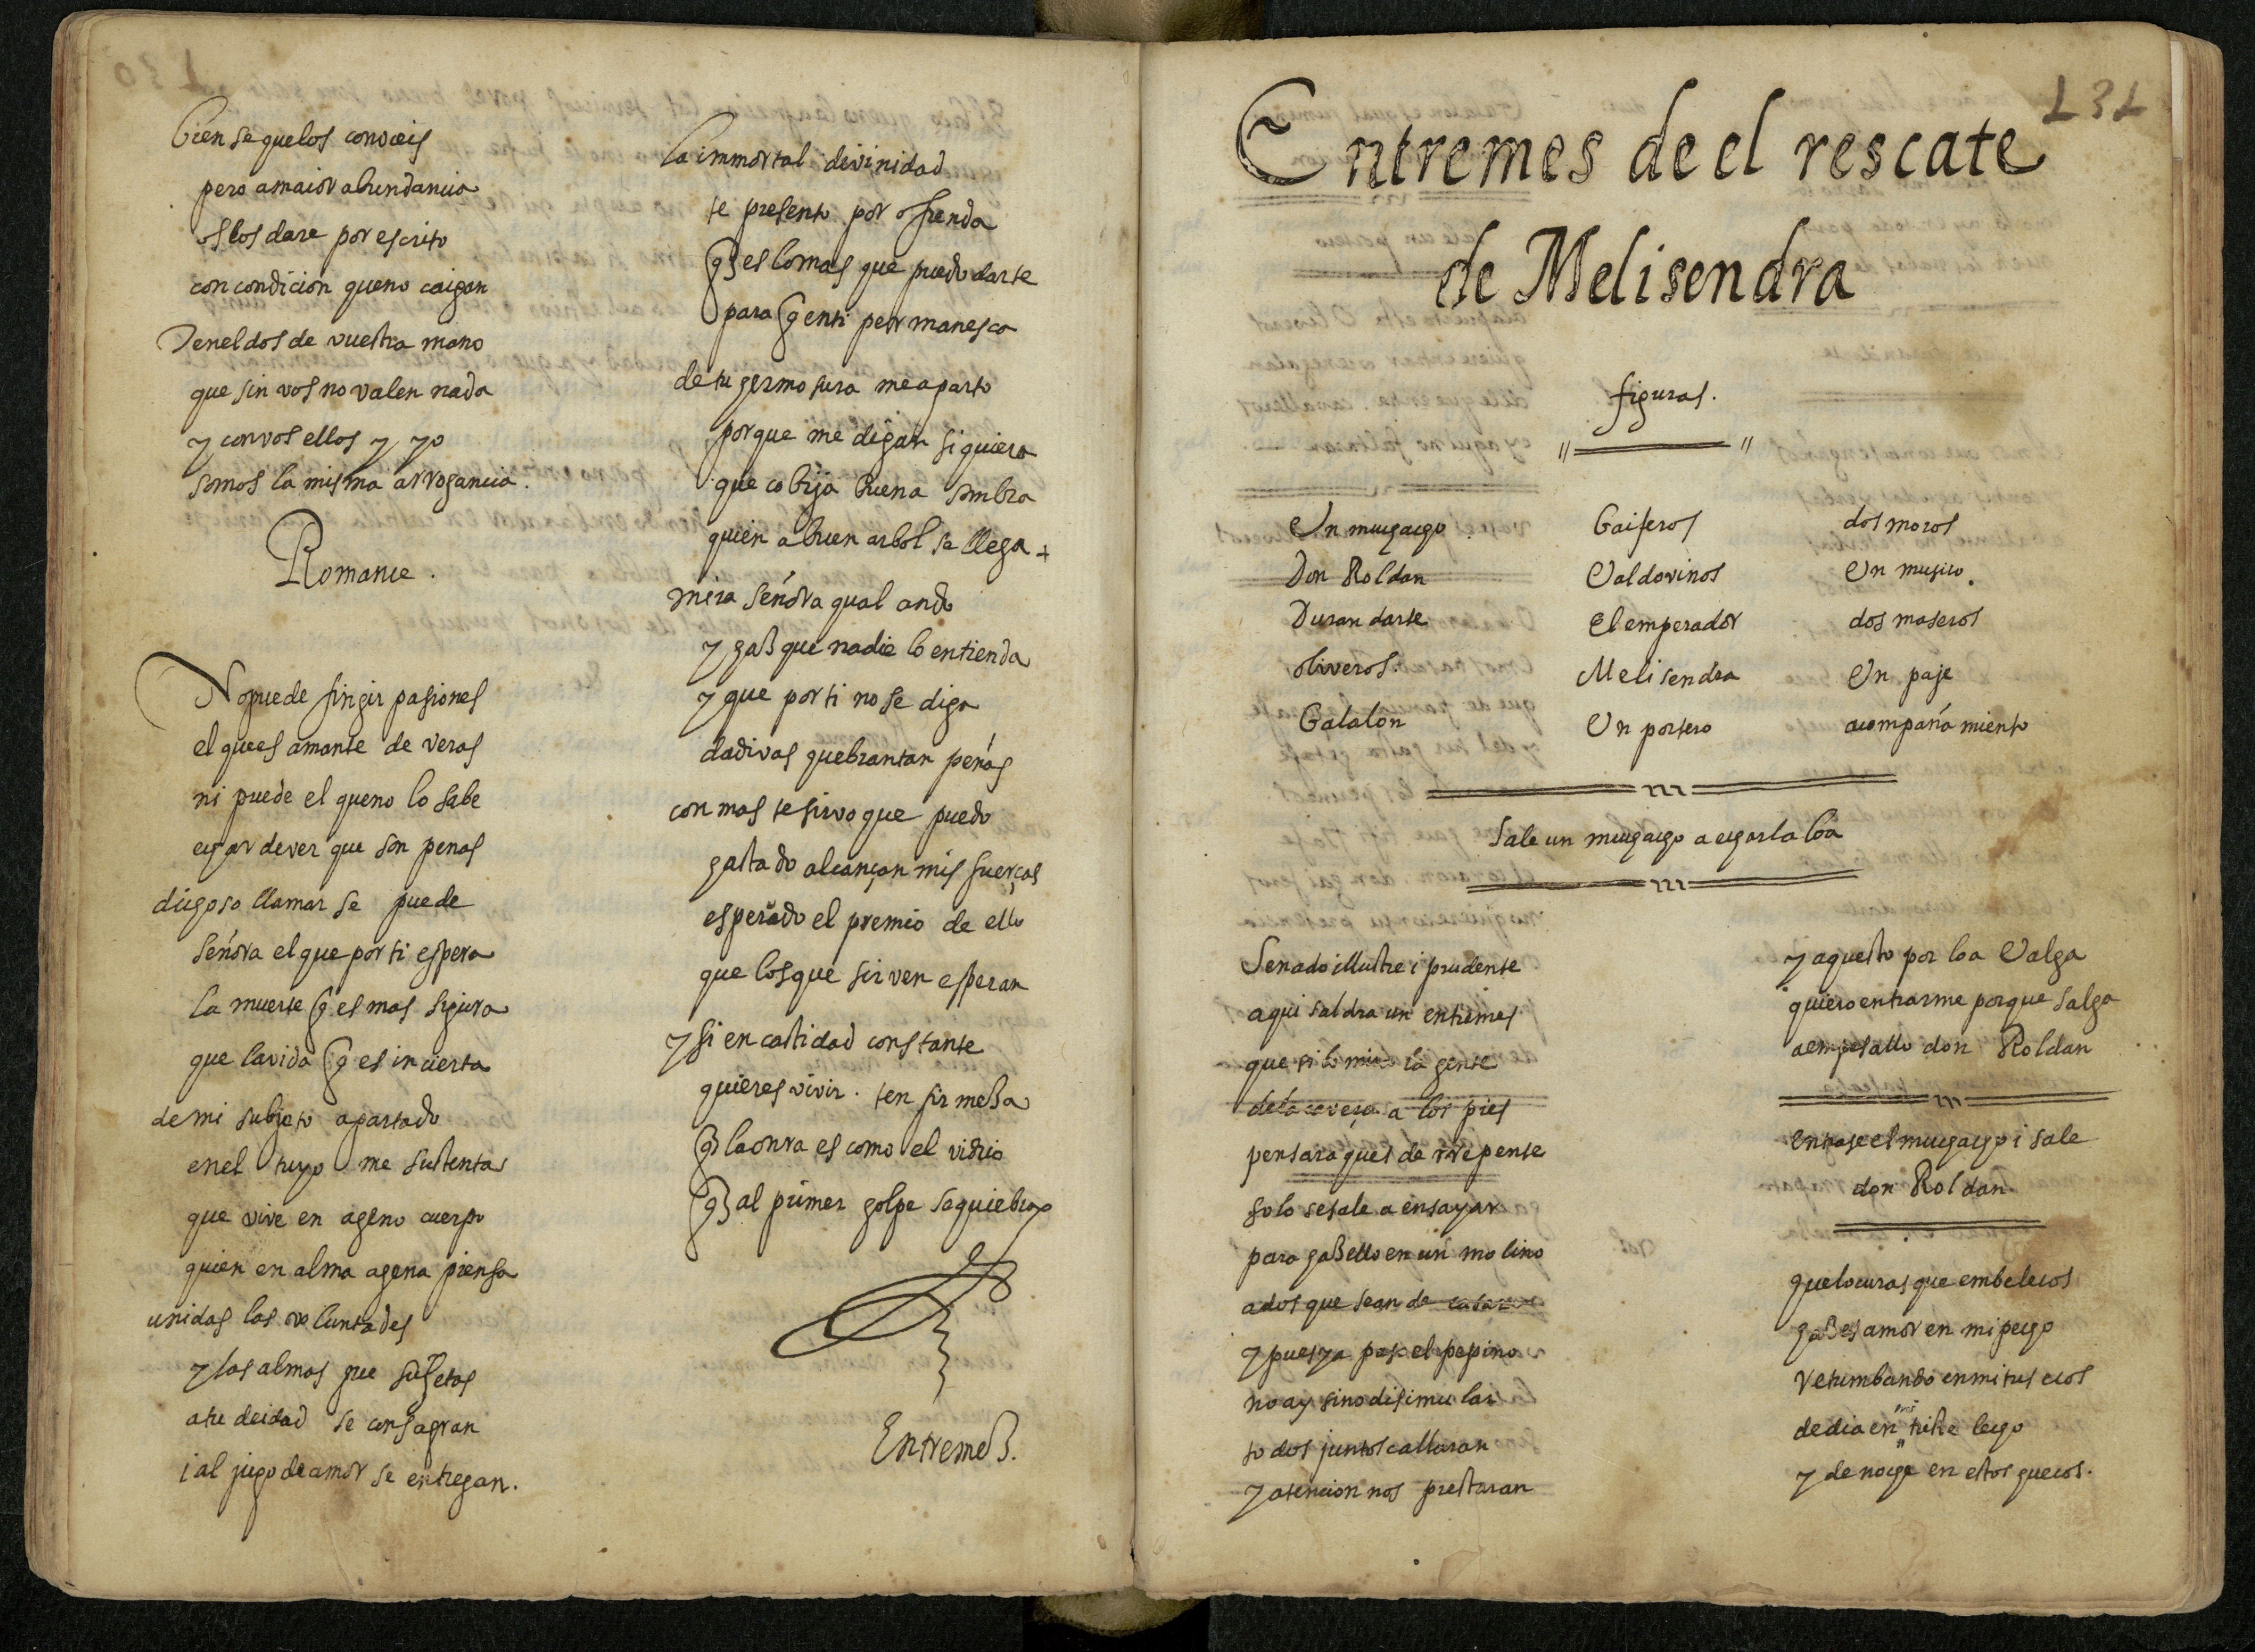 bien se quelos conoceis
pero amaior abundancia
os los dare por escrito
con condicion queno caigan
Teneldos de vuestra mano
que sin vos no valen nada
y convos ellos y yo
somos la misma arrogancia.
Romance.
Nopuede fingir pasiones
el quees amante de veras
ni puede el queno lo sabe
echar dever que son penas
dichoso llamar se puede
señora el que por ti espera
la muerte q es mas sigura
que lavida q es incierta
de mi subjeto apartado
enel tuyo me sustentas
que vive en ageno cuerpo
quien en alma agena piensa
unidas las voluntades
y las almas que sujetas
atu deidad se consagran
i al jugo de amor se entregan.
la immortal divinidad
te presento por ofrenda
q es lomas que puedo darte
para q enti permanesca
de tu hermosura me aparto
porque me digan siquiera
que cobija buena sombra
quien a buen arbol se llega +
mira señora qual ando
y haz que nadie lo entienda
y que por ti no se diga
dadivas quebrantan peñas
con mas te sirvo que puedo
hasta do alcançan mis fuerças
esperãdo el premio de ello
que los que sirven esperan
y si en castidad constante
quieres vivir. ten firmeza
q la onra es como el vidrio
q al primer golpe se quiebra
Entremes.
131
Entremes de el rescate
de Melisendra
figuras.
Un muchacho Gaiferos dos moros
Don Roldan Valdovinos Un musico.
Durandarte El emperador dos maseros
oliveros. Melisendra Un paje
Galalon Un portero acompañamiento
Sale un muchacho a echar la loa
Senado illustre i prudente
aqui saldra un entremes
que si lo mira la gente
de la caveça a los pies
pensara ques de rrepente
solo se sale a ensayar
para hazello en un molino
a dos que sean de casar
y pues ya pasel pepino
no ay sino disimular
todos juntos callaran
y atencion nos prestaran
y aquesto por loa Valga
quiero entrarme porque salga
aempesallo don Roldan
Entrase el muchacho i sale
don Roldan
que locuras que embelecos
hazes amor en mi pecho
retumbando en mi tus ecos
de dia en mi triste lecho
y de noche en estos huecos.